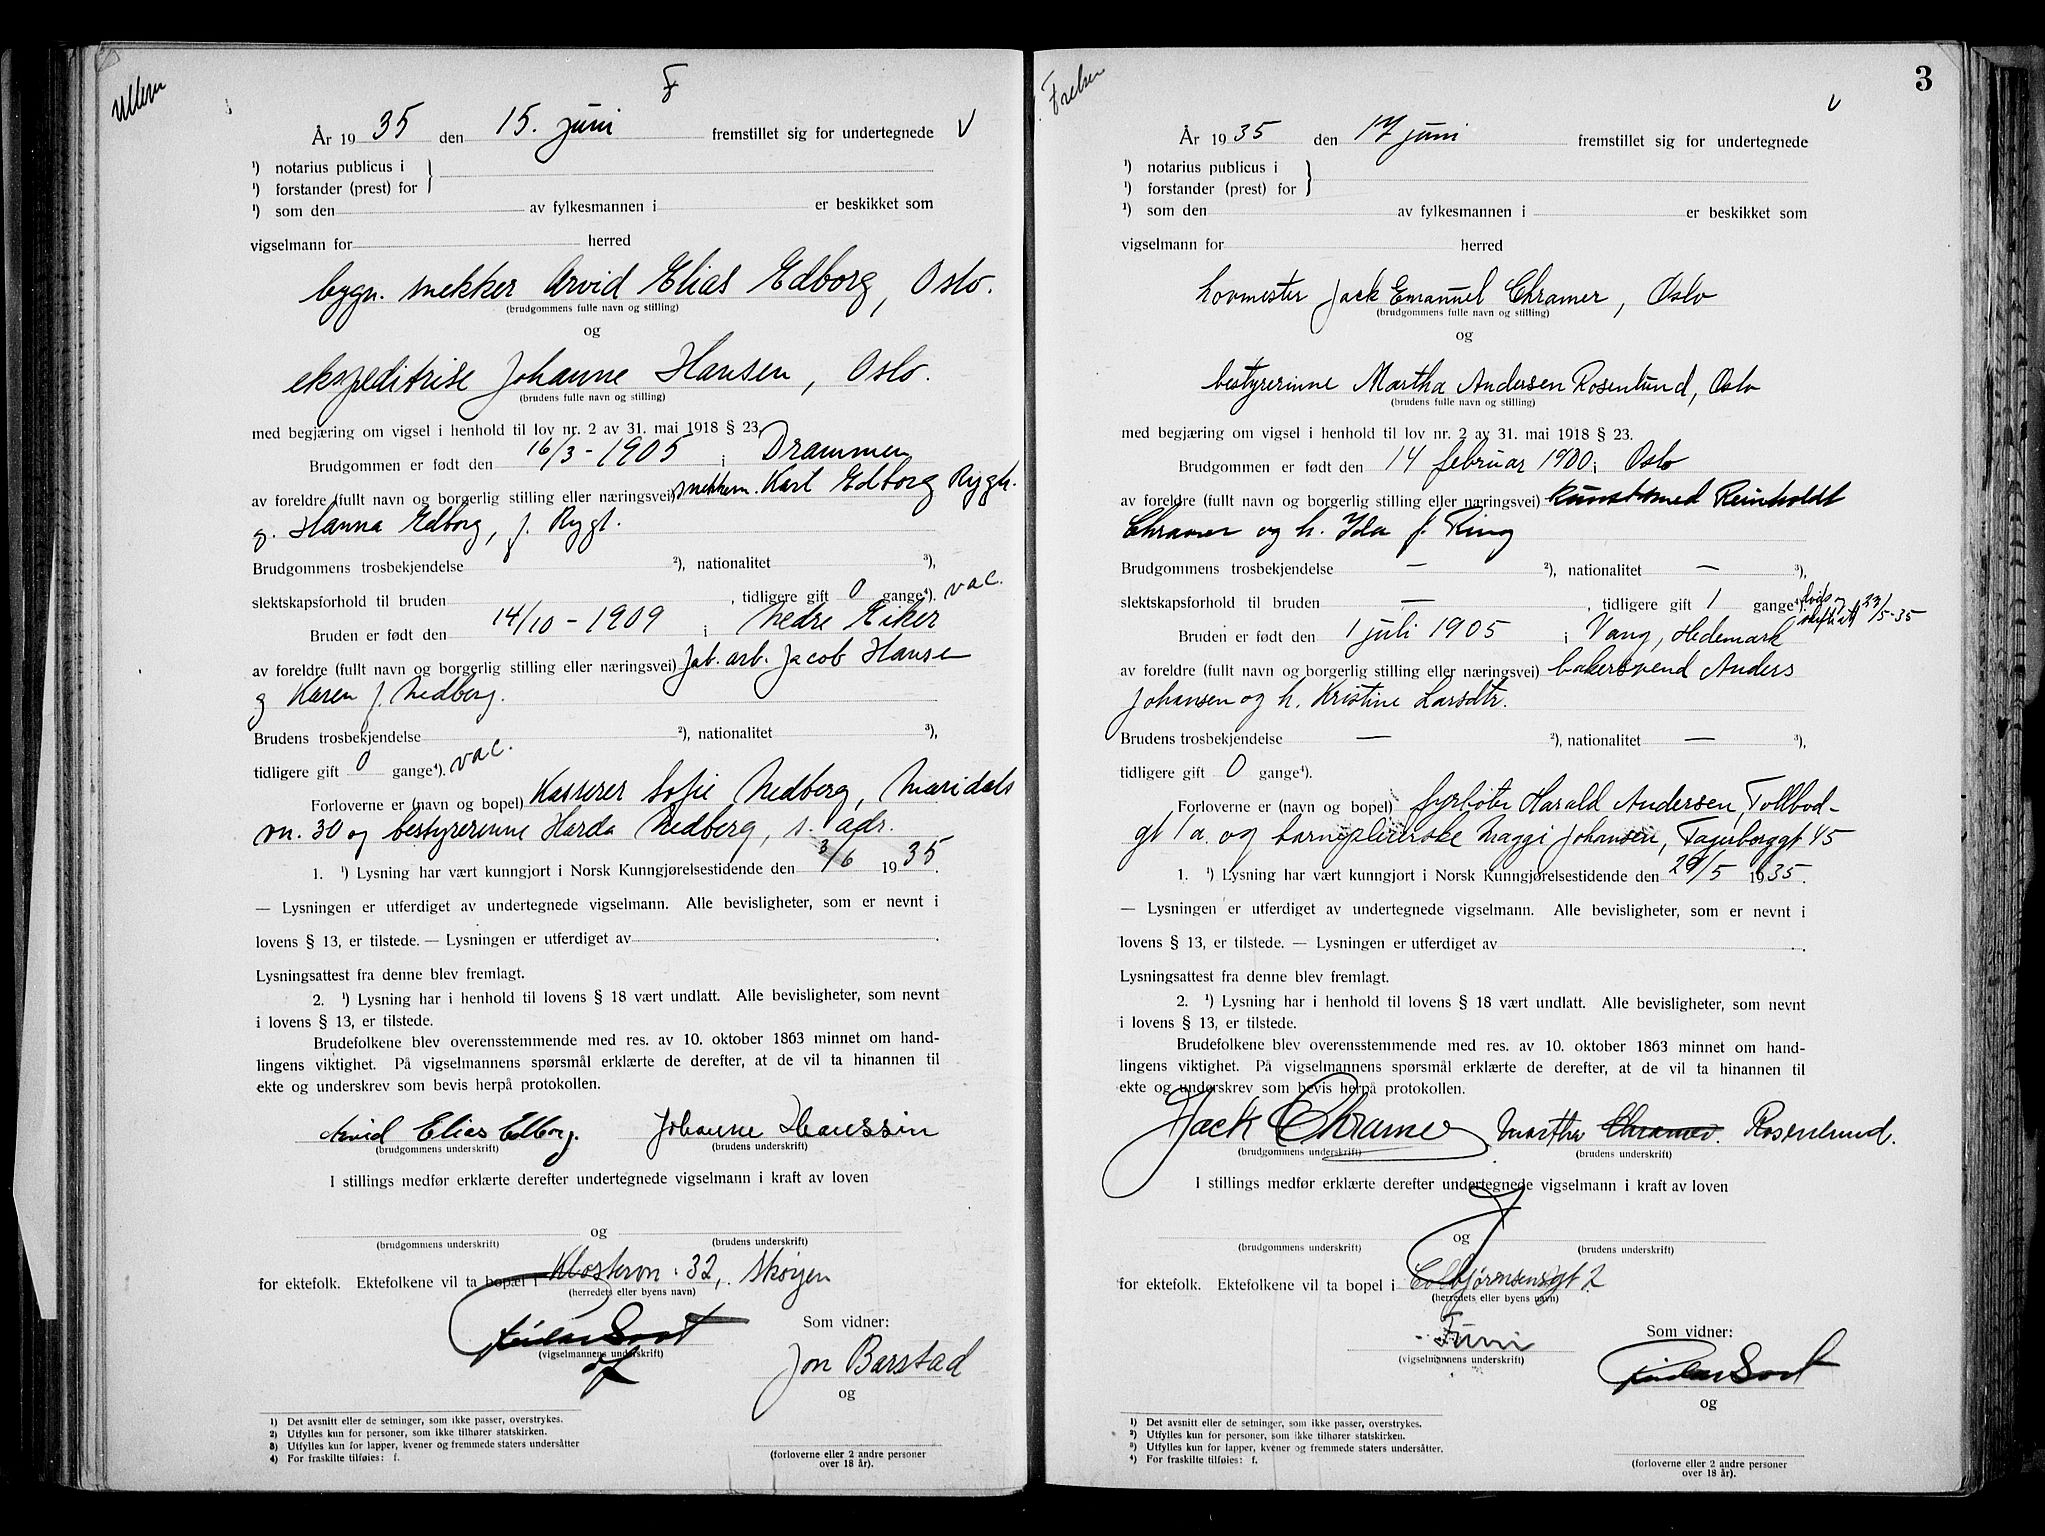 Ullern
F
År 1935 den 15. juni fremstillet sig for undertegnede V
¹) notarius publicus i
¹) forstander (prest) for
¹) som den av fylkesmannen i er beskikket som
vigselmann for herred
bygn. snekker Arvid Elias Edborg, Oslo.
(brudgommens fulle navn og stilling)
og
ekspeditrise Johanne Hansen, Oslo.
(brudens fulle navn og stilling)
med begjæring om vigsel i henhold til lov nr. 2 av 31. mai 1918 § 23.
Brudgommen er født den 16/3 - 1905 i Drammen
av foreldre (fullt navn og borgerlig stilling eller næringsvei) snekkerm. Karl Edborg Rygh.
g. Hanna Edborg, f. Rygh.
Brudgommens trosbekjendelse ²), nationalitet ³),
slektskapsforhold til bruden , tidligere gift 0 gange⁴). vac.
Bruden er født den 14/10 - 1909 i Nedre Eiker
av foreldre (fullt navn og borgerlig stilling eller næringsvei) fab. arb. Jacob Hansen
g Karen f. Nedberg.
Brudens trosbekjendelse ²), nationalitet ³),
tidligere gift 0 gange⁴). vac.
Forloverne er (navn og bopel) Kasserer Sofie Nedberg, Maridals
vn. 30 og bestyrerinne Harda Nedberg, s. adr.
1. ¹) Lysning har vært kunngjort i Norsk Kunngjørelsestidende den 3/6 1935.
— Lysningen er utferdiget av undertegnede vigselmann. Alle bevisligheter, som er nevnt i
lovens § 13, er tilstede. — Lysningen er utferdiget av .
Lysningsattest fra denne blev fremlagt.
2. ¹) Lysning har i henhold til lovens § 18 vært undlatt. Alle bevisligheter, som nevnt
i lovens § 13, er tilstede.
Brudefolkene blev overensstemmende med res. av 10. oktober 1863 minnet om hand-
lingens viktighet. På vigselmannens spørsmål erklærte de derefter, at de vil ta hinannen til
ekte og underskrev som bevis herpå protokollen.
Arvid Elias Edborg. Johanne Hanssen
(brudgommens underskrift) (brudens underskrift)
I stillings medfør erklærte derefter undertegnede vigselmann i kraft av loven
og
(brudgommens underskrift) (brudens underskrift)
for ektefolk. Ektefolkene vil ta bopel i Klostervn. 32, Skøyen
(herredets eller byens navn)
Som vidner:
(vigselmannens underskrift)
Jon Barstad
og
1) Det avsnitt eller de setninger, som ikke passer, overstrykes.
2) Utfylles kun for personer, som ikke tilhører statskirken.
3) Utfylles kun for lapper, kvener og fremmede staters undersåtter
4) For fraskilte tilføies: f.
(forloverne eller 2 andre personer
over 18 år).
Frelser
3
V
År 1935 den 17 juni fremstillet sig for undertegnede
¹) notarius publicus i
¹) forstander (prest) for
¹) som den av fylkesmannen i er beskikket som
vigselmann for herred
hovmester Jack Emanuel Chramer, Oslo
(brudgommens fulle navn og stilling)
og
bestyrerinne Martha Andersen Rosenlund, Oslo
(brudens fulle navn og stilling)
med begjæring om vigsel i henhold til lov nr. 2 av 31. mai 1918 § 23.
Brudgommen er født den 14 februar 1900 i Oslo
av foreldre (fullt navn og borgerlig stilling eller næringsvei) kunstsmed Reinholdt
Chramer og h. Ida f. Ring
Brudgommens trosbekjendelse — ²), nationalitet — ³),
slektskapsforhold til bruden — , tidligere gift 1 gange⁴). skifteatt 23/5-35
Bruden er født den 1 juli 1905 i Vang, Hedemark
av foreldre (fullt navn og borgerlig stilling eller næringsvei) bakersvend Anders
Johansen og h. Kristine Larsdtr.
Brudens trosbekjendelse — ²), nationalitet — ³),
tidligere gift 0 gange⁴).
Forloverne er (navn og bopel) fyrbøter Harald Andersen, Tollbod-
gt 1 a. og barnepleierske Maggi Johansen, Fagerborggt 45
1. ¹) Lysning har vært kunngjort i Norsk Kunngjørelsestidende den 29/5 1935.
— Lysningen er utferdiget av undertegnede vigselmann. Alle bevisligheter, som er nevnt i
lovens § 13, er tilstede. — Lysningen er utferdiget av .
Lysningsattest fra denne blev fremlagt.
2. ¹) Lysning har i henhold til lovens § 18 vært undlatt. Alle bevisligheter, som nevnt
i lovens § 13, er tilstede.
Brudefolkene blev overensstemmende med res. av 10. oktober 1863 minnet om hand-
lingens viktighet. På vigselmannens spørsmål erklærte de derefter, at de vil ta hinannen til
ekte og underskrev som bevis herpå protokollen.
Jack Chramer Martha Chramer. Rosenlund.
(brudgommens underskrift) (brudens underskrift)
I stillings medfør erklærte derefter undertegnede vigselmann i kraft av loven
og
(brudgommens underskrift) (brudens underskrift)
for ektefolk. Ektefolkene vil ta bopel i Colbjørnsensgt 2
(herredets eller byens navn)
Som vidner:
(vigselmannens underskrift)
og
1) Det avsnitt eller de setninger, som ikke passer, overstrykes.
2) Utfylles kun for personer, som ikke tilhører statskirken.
3) Utfylles kun for lapper, kvener og fremmede staters undersåtter.
4) For fraskilte tilføies: f.
(forloverne eller 2 andre personer
over 18 år).